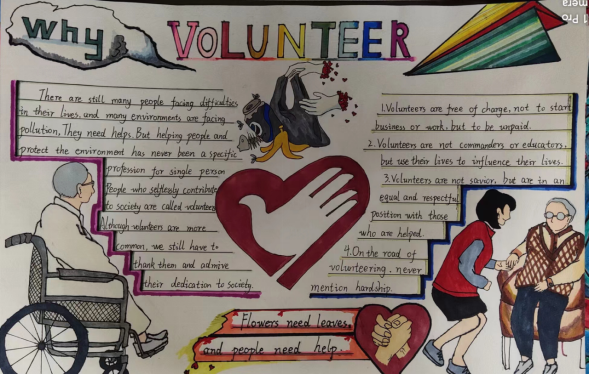 why VOLUNTEER
There are still many people facing difficulties
in their lives, and many environments are facing
pollution. They need helps. But helping people and
protect the environment has never been a specific
profession for single person
People who selflessly contribute
to society are called volunteers
Although volunteer are more
common, we still have to
thank them and admire
their dedication to society.
1.Volunteers are free of charge, not to start
business or work, but to be unpaid.
2.Volunteers are not commanders or educators,
but use their lives to influence their lives.
3.Volunteers are not savior, but are in an
equal and respectful
position with those
who are helped.
4.On the road of
volunteering, never
mention hardship.
Flowers need leaves,
and people need help...
1 Pro
mera